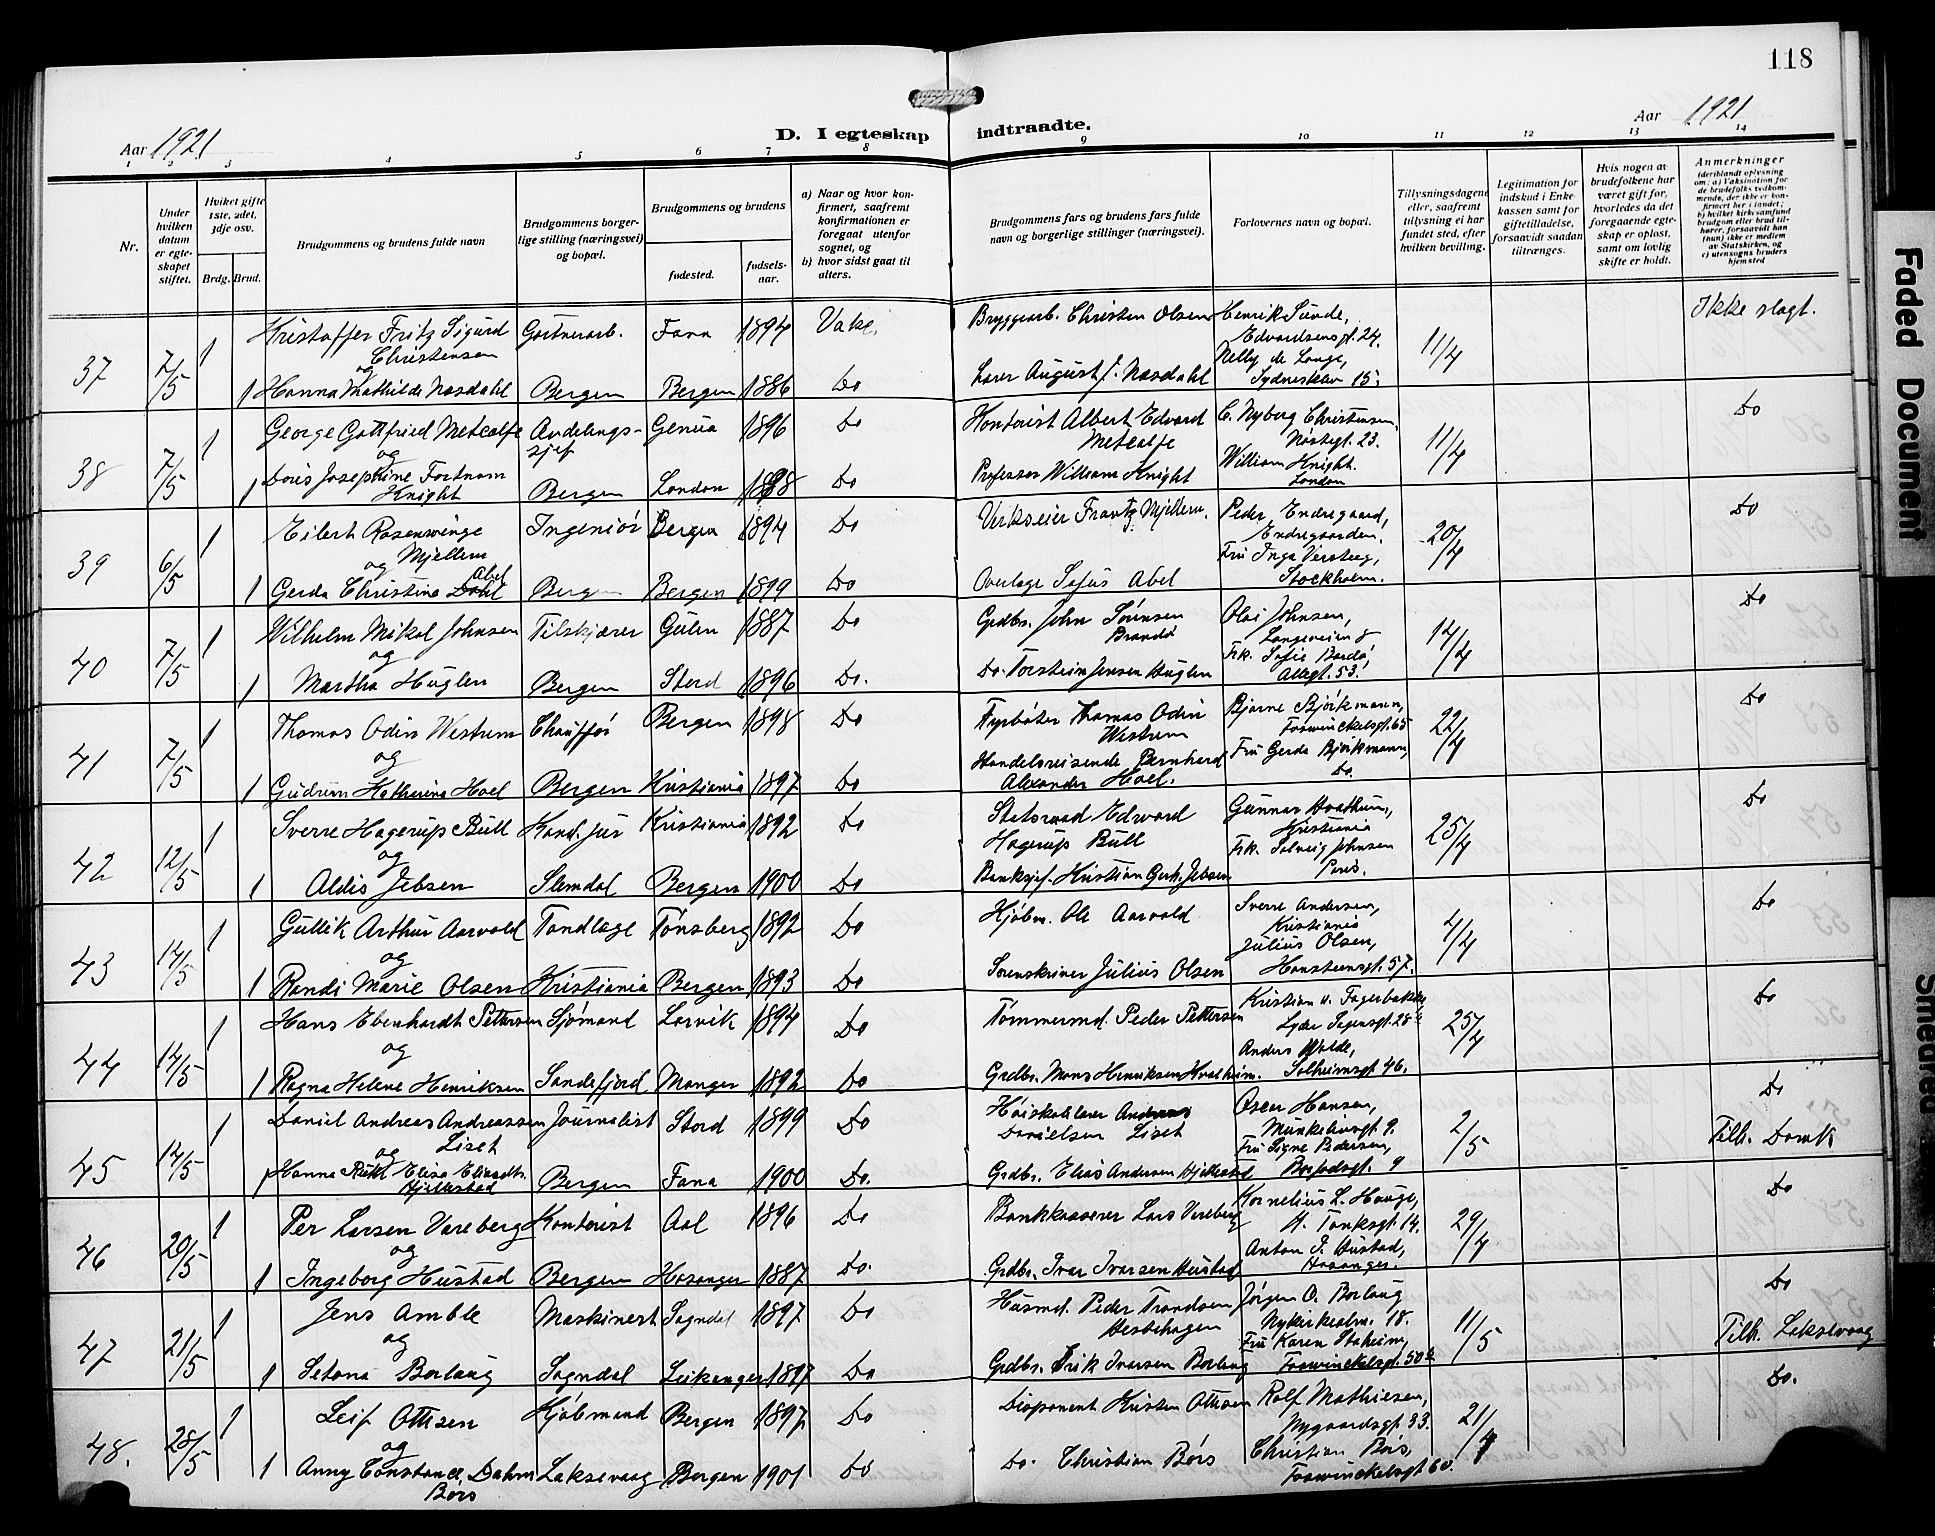 118
Aar 1921
D. I egteskap indtraadte.
Aar 1921
1 2 3 4 5 6 7 8 9 10 11 12 13 14
Nr.
Under hvilken datum er egteskapet stiftet.
Hviket gifte 1ste, 2det, 3dje osv.
Brdg. Brud.
Brudgommens og brudens fulde navn
Brudgommens borgerlige stilling (næringsvei) og bopæl.
Brudgommens og brudens
fødested.
fødselsaar.
a) Naar og hvor konfirmert, saafremt konfirmationen er foregaat utenfor sognet, og
b) hvor sidst gaat til alters.
Brudgommens fars og brudens fars fulde navn og borgerlige stillinger (næringsvei).
Forlovernes navn og bopæl.
Tillysningsdagene eller, saafremt tillysning ei har fundet sted, efter hvilken bevilling.
Legitimation for indskud i Enkekassen samt for giftetilladelse, forsaavidt saadan tiltrænges.
Hvis nogen av brudefolkene har været gift før, hvorledes da det foregaaende egteskap er opløst, samt om lovlig skifte er holdt.
Anmerkninger
(deriblandt oplysning om: a) Vaksination for de brudefolks vedkommende, der ikke er konfirmert her i landet; b) hvilket kirkesamfund brudgom eller brud tilhører, forsaavidt han (hun) ikke er medlem av Statskirken, og c) utensogns bruders hjemsted
37 7/5 1 Kristoffer Fritz Sigurd Christensen Gartnerarb. Fana 1894 Vake. Bryggearb. Christen Olsen Henrik Sunde, Edvardsensgt. 24. 11/4 Ikke slægt.
og
1 Hanna Mathilde Næsdahl Bergen Bergen 1886 Do Lærer August J. Næsdahl Nelly de Lange, Sydneskleiv 15.
38 7/5 1 George Gottfried Metcalfe Avdelingssjef Genua 1896 Do Kontorist Albert Edvard Metcalfe C. Nyborg Christensen, Nøstegt. 23. 11/4 Do
og
1 Doris Josephine Fortnam Knight Bergen London 1898 Do Professor William Knight William Knight. London
39 6/5 1 Eilert Rosenvinge Mjellem Ingeniør Bergen 1894 Do Verkseier Frantz Mjellem. Peder Endregaard, Endregaarden. 20/4 Do
og
1 Gerda Christina Abel Bergen Bergen 1899 Do Overlæge Sofus Abel Fru Inga Versteeg, Stockholm.
40 7/5 1 Wilhelm Mikal Johnsen Tilskjærer Gulen 1887 Do Grdbr. John Sørensen Brandø Olai Johnsen, Langeveien 8 14/4 Do
og
1 Martha Huglen Bergen Stord 1896 Do. Do. Torstein Jensen Huglen Frk. Sofie Bardø, Allegt. 53.
41 7/5 1 Thomas Odin Westrum Chauffør Bergen 1898 Do Fyrbøter Thomas Odin Westrum Bjarne Bjørkmann, Fosswinckelsgt. 65 22/4 Do
og
1 Gudrun Katharina Hoel Bergen Kristiania 1897 Do Handelsreisende Bernhard Alexander Hoel. Fru Gerda Bjørkmann, Do.
42 12/5 1 Sverre Hagerup Bull Kand. jur Kristiania 1892 Do Statsraad Edvard Hagerup Bull Gunnar Hvathum, Kristiania 25/4 Do
og
1 Aldis Jebsen Slemdal Bergen 1900 Do Banksjef. Kristian Gerh. Jebsen Frk. Solveig Johnsen Paris.
43 14/5 1 Gullik Arthur Aarvold Tandlæge Tønsberg 1892 Do Kjøbm. Ole Aarvold Sverre Andersen, Kristiania 4/4 Do
og
1 Randi Marie Olsen Kristiania Bergen 1893 Do Sorenskriver Julius Olsen Julius Olsen, Hansteensgt. 57.
44 14/5 1 Hans Ebenhardt Pettersen Sjømand Larvik 1894 Do Tømmermd. Peder Pettersen Kristian v. Fagerbakke Lyder Sagensgt. 28 25/4 Do
og
1 Ragna Helene Henriksen Sandefjord Manger 1892 Do Grdbr. Mons Henriksen Kvalheim. Anders Walde, Solheimsgt. 46.
45 14/5 1 Daniel Andreas Andreassen Liset Journalist Stord 1899 Do Høiskolelærer Andreas Danielsen Liset Oscar Hansen, Munkebovgt. 9. 2/5 Do
og Tilh. Domk
1 Hanna Elisa Eliasdtr. Hjellestad Bergen Fana 1900 Do. Grdbr. Elias Andersen Hjellestad Fru Signe Pedersen, 9
46 20/5 1 Per Larsen Vareberg Kontorist Aal 1896 Do Bankkasserer Lars Vareberg Kornelius L. Hauge, H. Tanksgt. 14. 29/4 Do
og
1 Ingeborg Hustad Bergen Hosanger 1887 Do. Grdbr. Ivar Ivarsen Hustad Anton I. Hustad, Hosanger.
47 21/5 1 Jens Amble Maskinest Sogndal 1897 Do Husmd. Peder Trondsen Hesbehagen Jørgen O. Borlaug Nykirkealm. 18. 11/5 Do
og Tilh. Laksevaag
1 Setona Borlaug Sogndal Leikanger 1897 Do Grdbr. Erik Ivarsen Borlaug Fru Karen Stokeim, Fosswinckelsgt. 50
48. 28/5 1 Leif Ottesen Kjøbmand Bergen 1897 Do Disponent Kristen Ottesen Rolf Mathiesen, Nygaardsgt. 33. 21/4 Do.
og
1 Anny Constance Dahm Børs Laksevaag Bergen 1901 Do Do. Christian Børs Christian Børs, Fosswinckelsgt 60.
Faded Document
Smeared